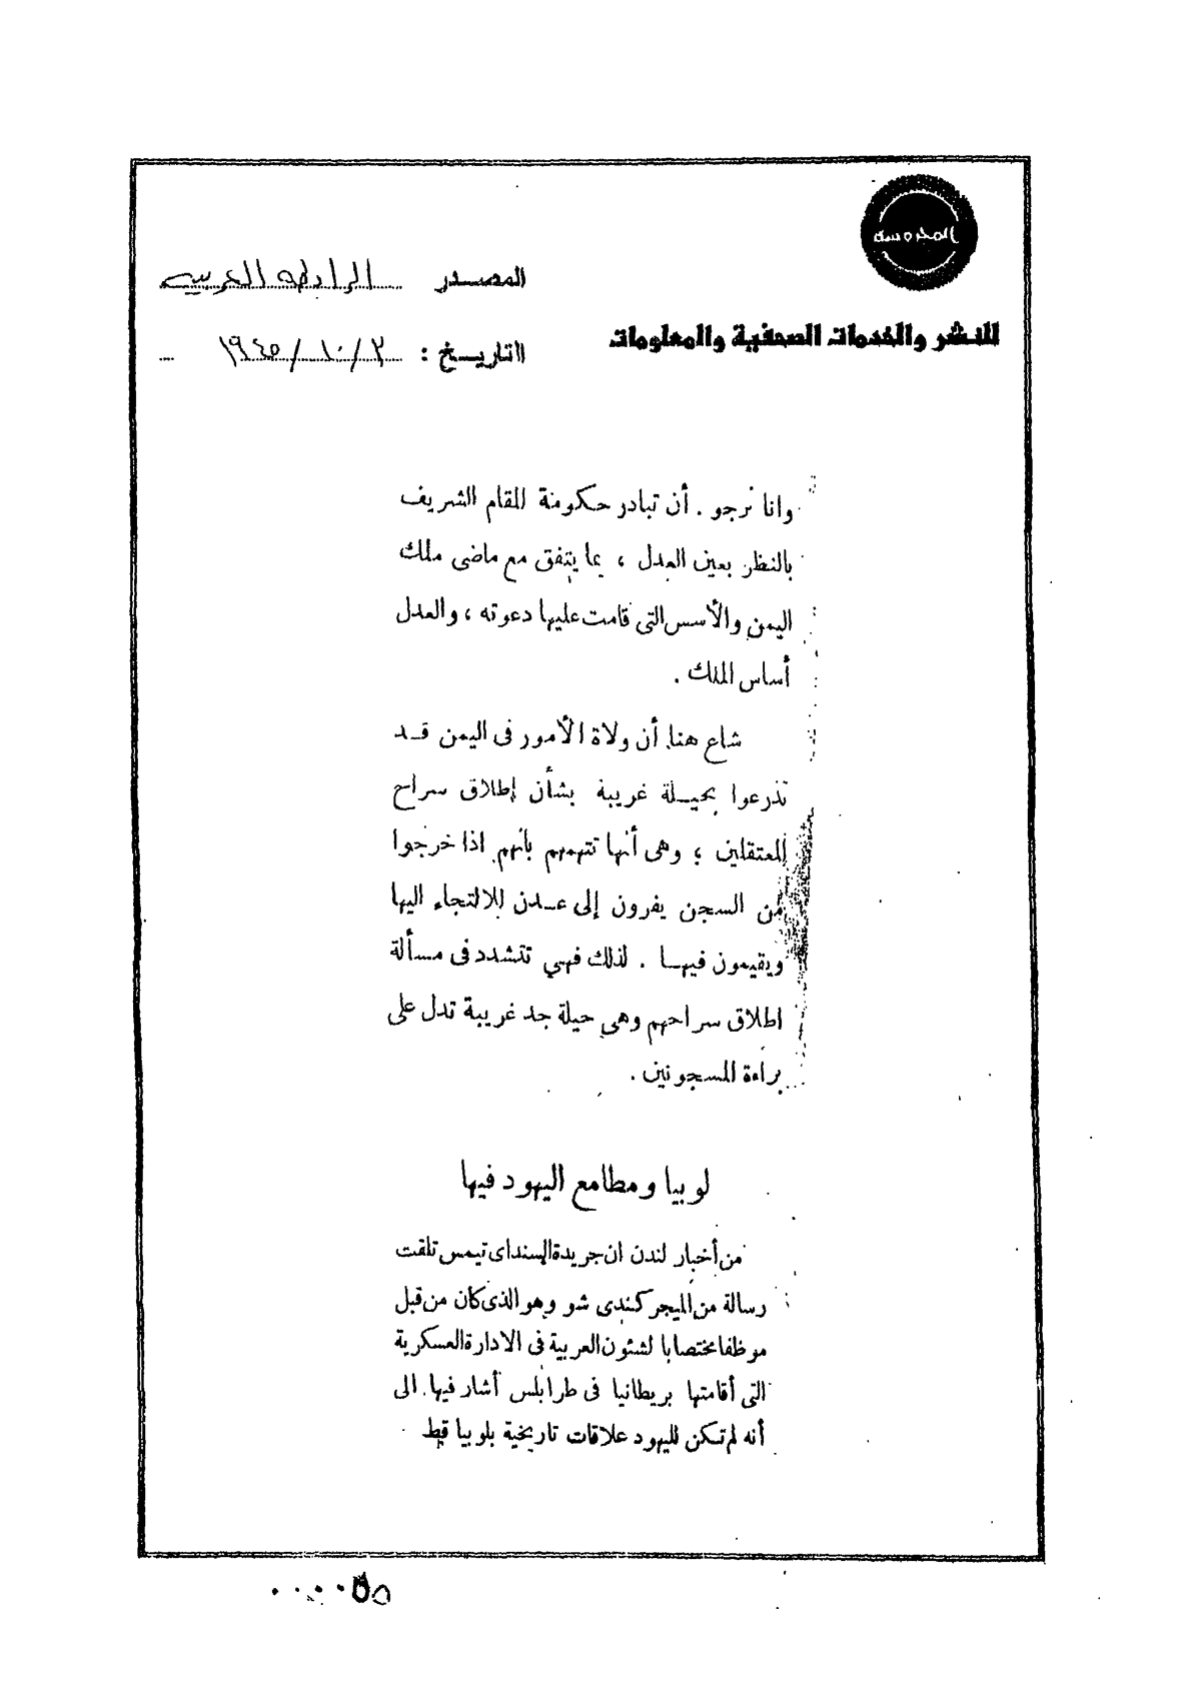 المحروسة
للنشر والخدمات الصحفية والمعلومات
المصدر الرابطه العربيه
التاريخ : ٢/١٠/١٩٤٥
وانا نرجو . أن تبادر حكومة المقام الشريف
بالنظر بعين العدل ، بما يتفق مع ماضى ملك
اليمن والأسس التى قامت عليها دعوته ، والعدل
أساس الملك .
شاع هنا أن ولاة الأمور فى اليمن قد
تذرعوا بحيلة غريبة بشأن إطلاق سراح
المعتقلين ؛ وهى أنها تتهمهم بأنهم اذا خرجوا
من السجن يفرون إلى عدن للالتجاء اليها
ويقيمون فيها . لذلك فهى تتشدد فى مسألة
اطلاق سراحهم وهى حيلة جد غريبة تدل على
براءة المسجونين .
لوبيا ومطامع اليهود فيها
من أخبار لندن ان جريدة السنداى تيمس تلقت
رسالة من الميجر كندى شو وهو الذى كان من قبل
موظفا مختصا با لشئون العربية فى الادارة العسكرية
التى أقامتها بريطانيا فى طرابلس أشار فيها الى
أنه لم تكن لليهود علاقات تاريخية بلوبيا قط